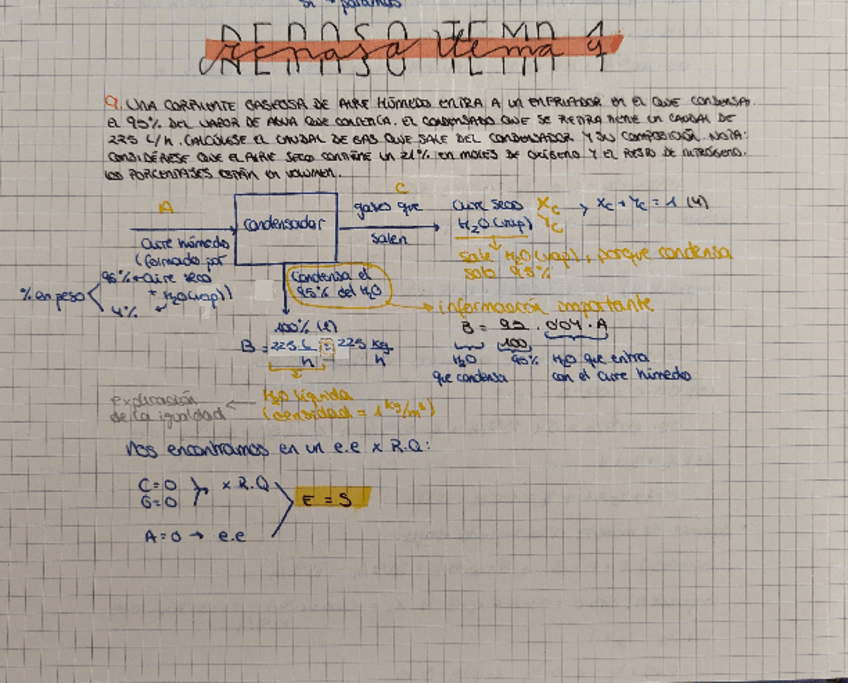 REPASO TEMA 1
repaso tema 1
9. UNA CORRIENTE GASEOSA DE AIRE HÚMEDO ENTRA A UN ENFRIADOR EN EL QUE CONDENSA
EL 95% DEL VAPOR DE AGUA QUE CONTENÍA. EL CONDENSADO QUE SE RETIRA TIENE UN CAUDAL DE
225 L/h. CALCÚLESE EL CAUDAL DE GAS QUE SALE DEL CONDENSADOR Y SU COMPOSICIÓN. NOTA:
CONSIDÉRESE QUE EL AIRE SECO CONTIENE UN 21% EN MOLES DE OXÍGENO Y EL RESTO DE NITRÓGENO.
LOS PORCENTAJES ESTÁN EN VOLUMEN.
A
Aire húmedo
(formado por
% en peso
96% → aire seco
4% + H2O(vap))
condensador
C
gases que
salen
aire seco Xc → Xc + Yc = 1 (4)
H2O(vap) Yc
sale H2O(vap), porque condensa
solo 95%
Condensa el
95% del H2O
→ información importante
100% (l)
B = 225 L/h = 225 Kg/h
B = 95/100 · 0'04 · A
H2O
que condensa
95%
H2O que entra
con el aire húmedo
explicación
de la igualdad
← H2O líquida
(densidad = 1 kg/m³)
Nos encontramos en un e.e x R.Q:
C=0
G=0
x R.Q
A=0 → e.e
E = S